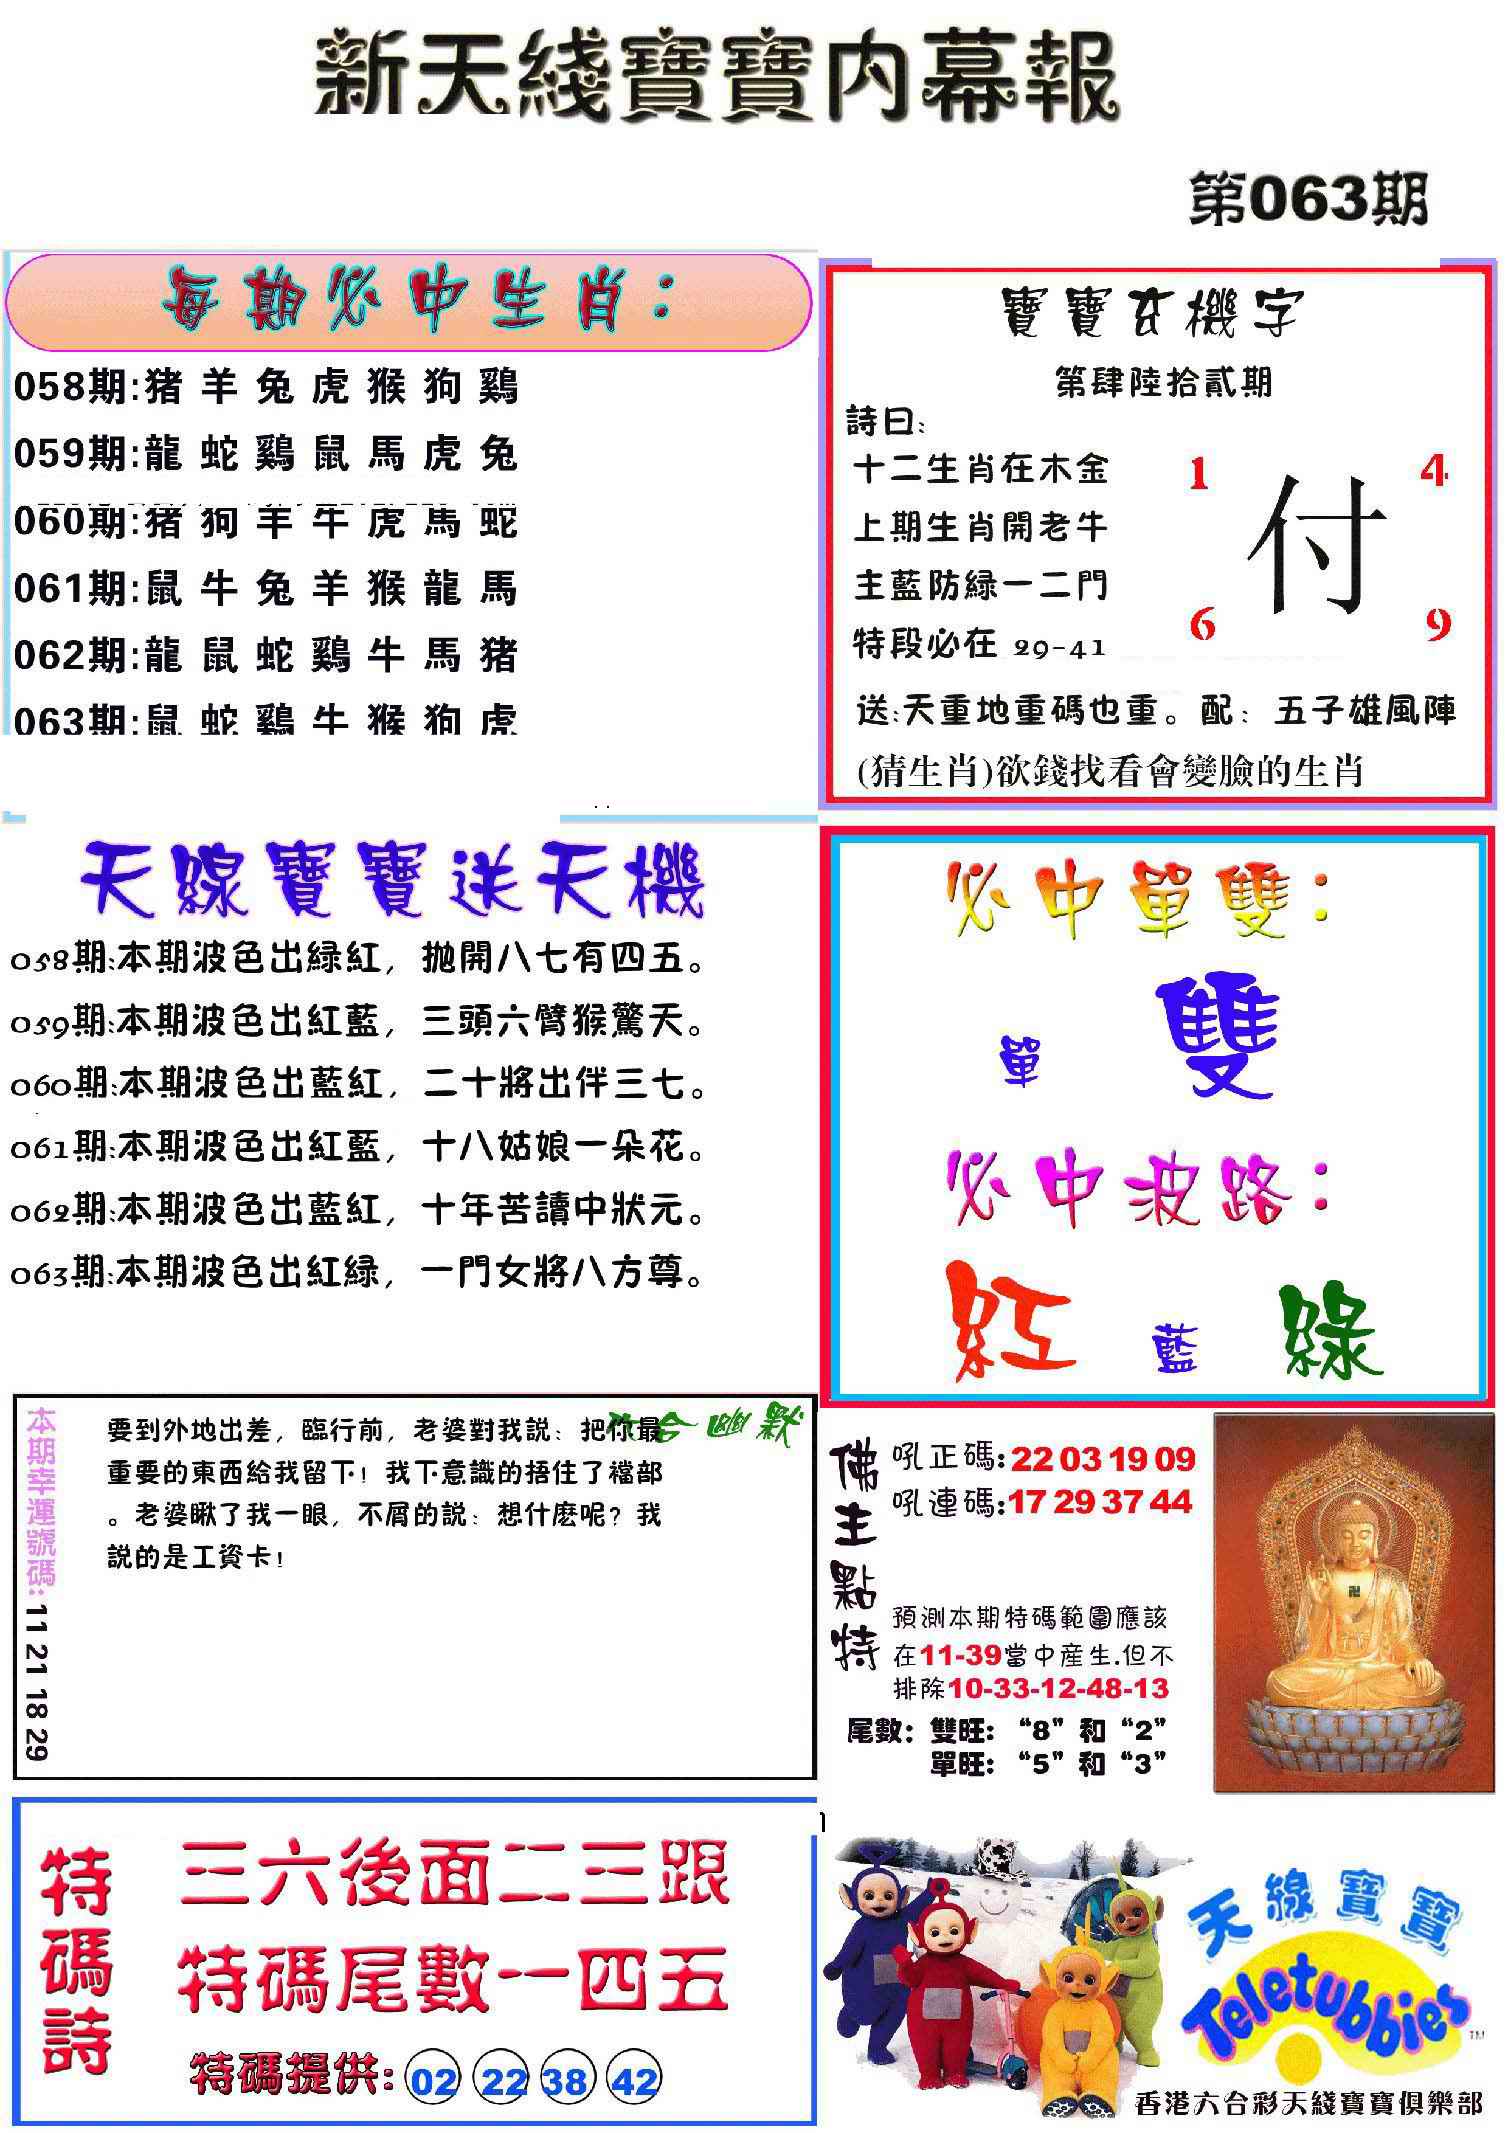 新天綫寶寶内幕報
第063期
每期必中生肖：
058期:猪 羊 兔 虎 猴 狗 鷄
059期:龍 蛇 鷄 鼠 馬 虎 兔
060期:猪 狗 羊 牛 虎 馬 蛇
061期:鼠 牛 兔 羊 猴 龍 馬
062期:龍 鼠 蛇 鷄 牛 馬 猪
063期:鼠 蛇 鷄 牛 猴 狗 虎
寶寶玄機字
第肆陸拾貳期
詩曰:
十二生肖在木金
上期生肖開老牛
主藍防緑一二門
特段必在 29-41
1 4
付
6 9
送:天重地重碼也重。配：五子雄風陣
(猜生肖)欲錢找看會變臉的生肖
天線寶寶送天機
058期:本期波色出緑紅，抛開八七有四五。
059期:本期波色出紅藍，三頭六臂猴驚天。
060期:本期波色出藍紅，二十將出伴三七。
061期:本期波色出紅藍，十八姑娘一朵花。
062期:本期波色出藍紅，十年苦讀中狀元。
063期:本期波色出紅緑，一門女將八方尊。
必中單雙：
單 雙
必中波路：
紅 藍 綠
本期幸運號碼:11 21 18 29
六合幽默
要到外地出差，臨行前，老婆對我説：把你最
重要的東西給我留下！我下意識的捂住了襠部
。老婆瞅了我一眼，不屑的説：想什麽呢？我
説的是工資卡！
佛主點特
吼正碼:22 03 19 09
吼連碼:17 29 37 44
預測本期特碼範圍應該
在11-39當中産生.但不
排除10-33-12-48-13
尾數：雙旺：“8”和“2”
單旺：“5”和“3”
特碼詩
三六後面二三跟
特碼尾數一四五
特碼提供: 02 22 38 42
天線寶寶
Teletubbies
TM
香港六合彩天綫寶寶俱樂部